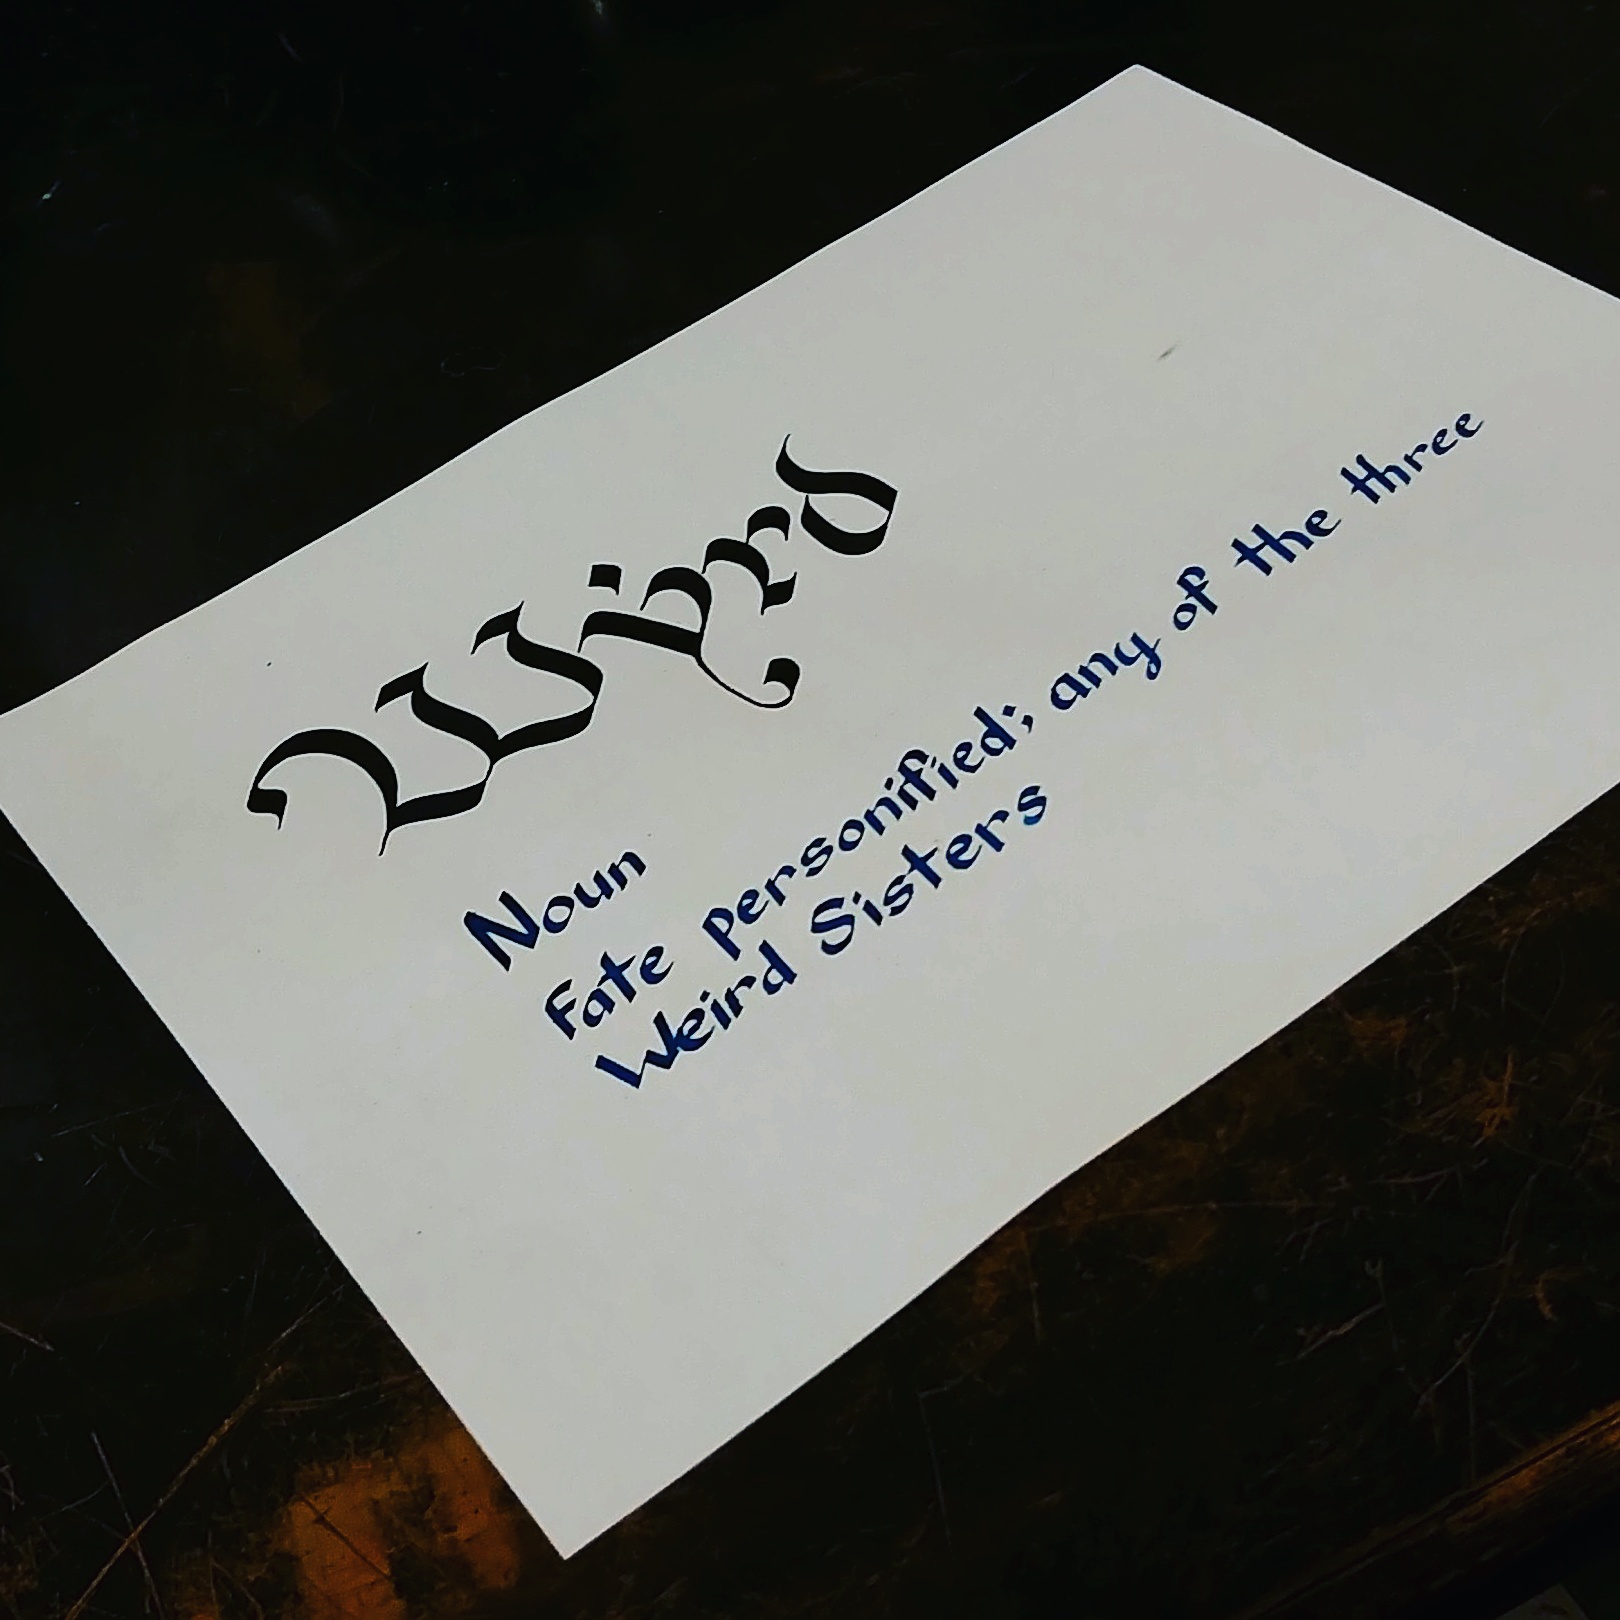 Wyrd
Noun
Fate personified; any of the three
Weird Sisters